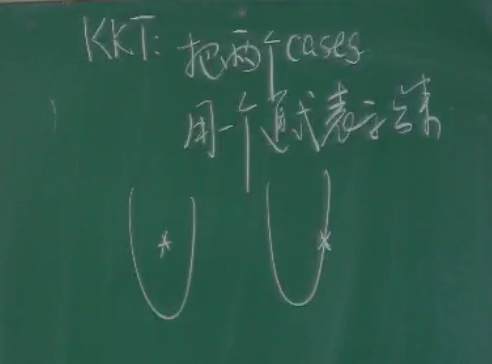 KKT: 把两个cases
用一个通式表示出来